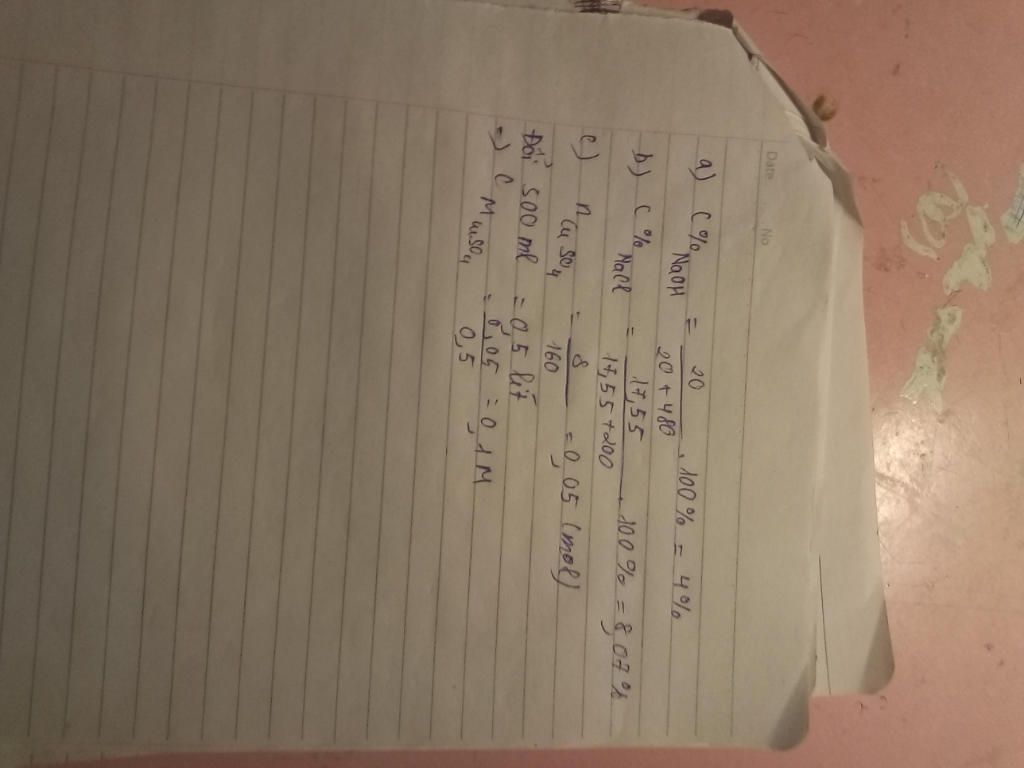 Date No
a) C%NaOH = 20 / 20 + 480 . 100% = 4%
b) C%NaCl = 17,55 / 17,55 + 200 . 100% = 8,07%
c) nCuSO4 = 8 / 160 = 0,05 (mol)
Đổi 500 ml = 0,5 lít
=) CMCuSO4 = 0,05 / 0,5 = 0,1M